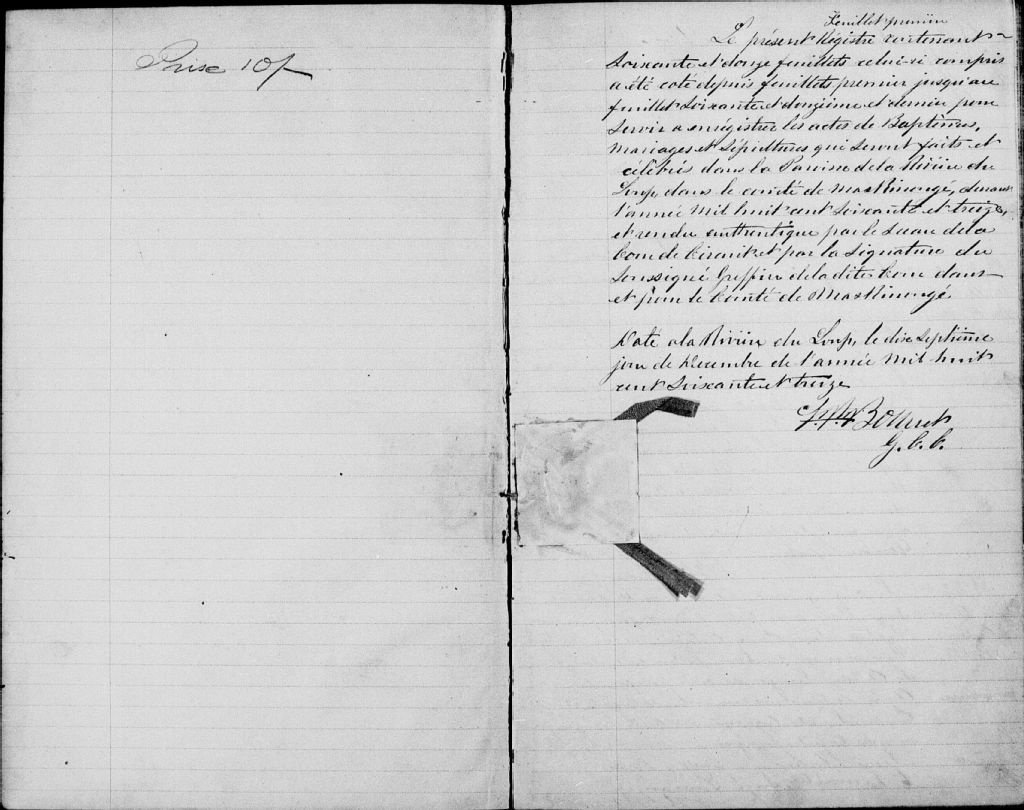 Prix 10/-
Feuillet premier
Le présent Régistre contenant
soixante et douze feuillets celui-ci compris
a été coté depuis feuillets premier jusqu'au
feuillet soixante et douzième et dernier pour
servir a enrégistrer les actes de Baptêmes,
mariages et sépultures qui seront faits et
célébrés dans la Paroisse de la Rivière du
Loup, dans le comté de Maskinongé, durant
l'année mil huit cent soixante et treize,
et rendu authentique par le sceau de la
Cour de Circuit et par la signature du
Soussigné Greffier de la dite Cour dans
et pour le Comté de Maskinongé
Daté a la Rivière du Loup, le dix septième
jour de Décembre de l'année mil huit
cent soixante et treize
G. C. C.